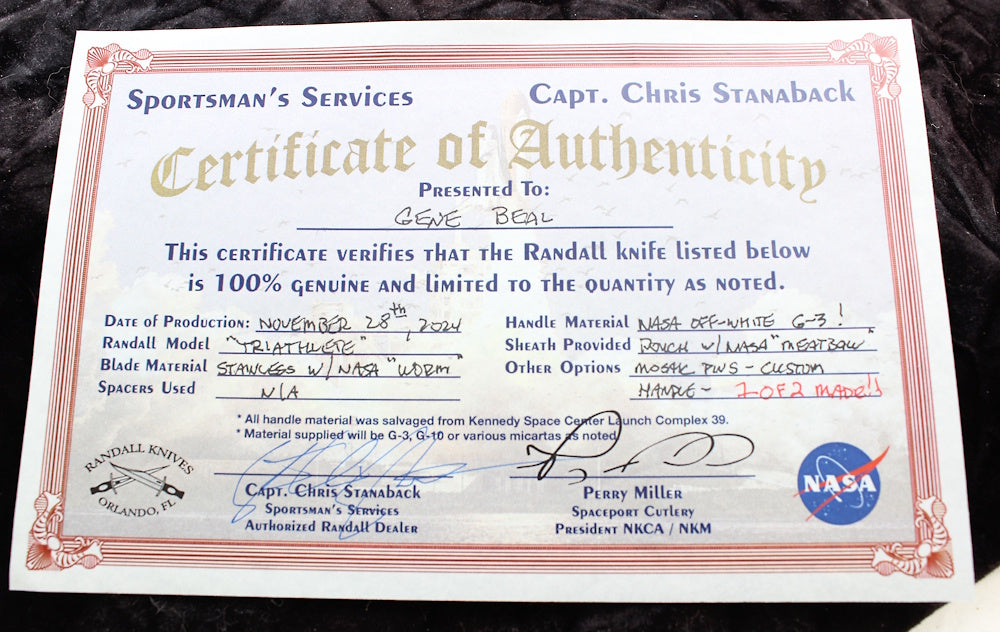 Sportsman's Services
Capt. Chris Stanaback
Certificate of Authenticity
Presented To:
GENE BEAL
This certificate verifies that the Randall knife listed below
is 100% genuine and limited to the quantity as noted.
Date of Production: NOVEMBER 28th, 2024
Randall Model "TRIATHLETE"
Blade Material STAINLESS W/ NASA "WORM"
Spacers Used N/A
Handle Material NASA OFF-WHITE G-3!
Sheath Provided POUCH W/ NASA "MEATBALL"
Other Options MOSAIC PINS - CUSTOM
HANDLE - 1 OF 2 MADE!!
* All handle material was salvaged from Kennedy Space Center Launch Complex 39.
* Material supplied will be G-3, G-10 or various micartas as noted
RANDALL KNIVES
ORLANDO, FL
Capt. Chris Stanaback
Sportsman's Services
Authorized Randall Dealer
Perry Miller
Spaceport Cutlery
President NKCA / NKM
NASA